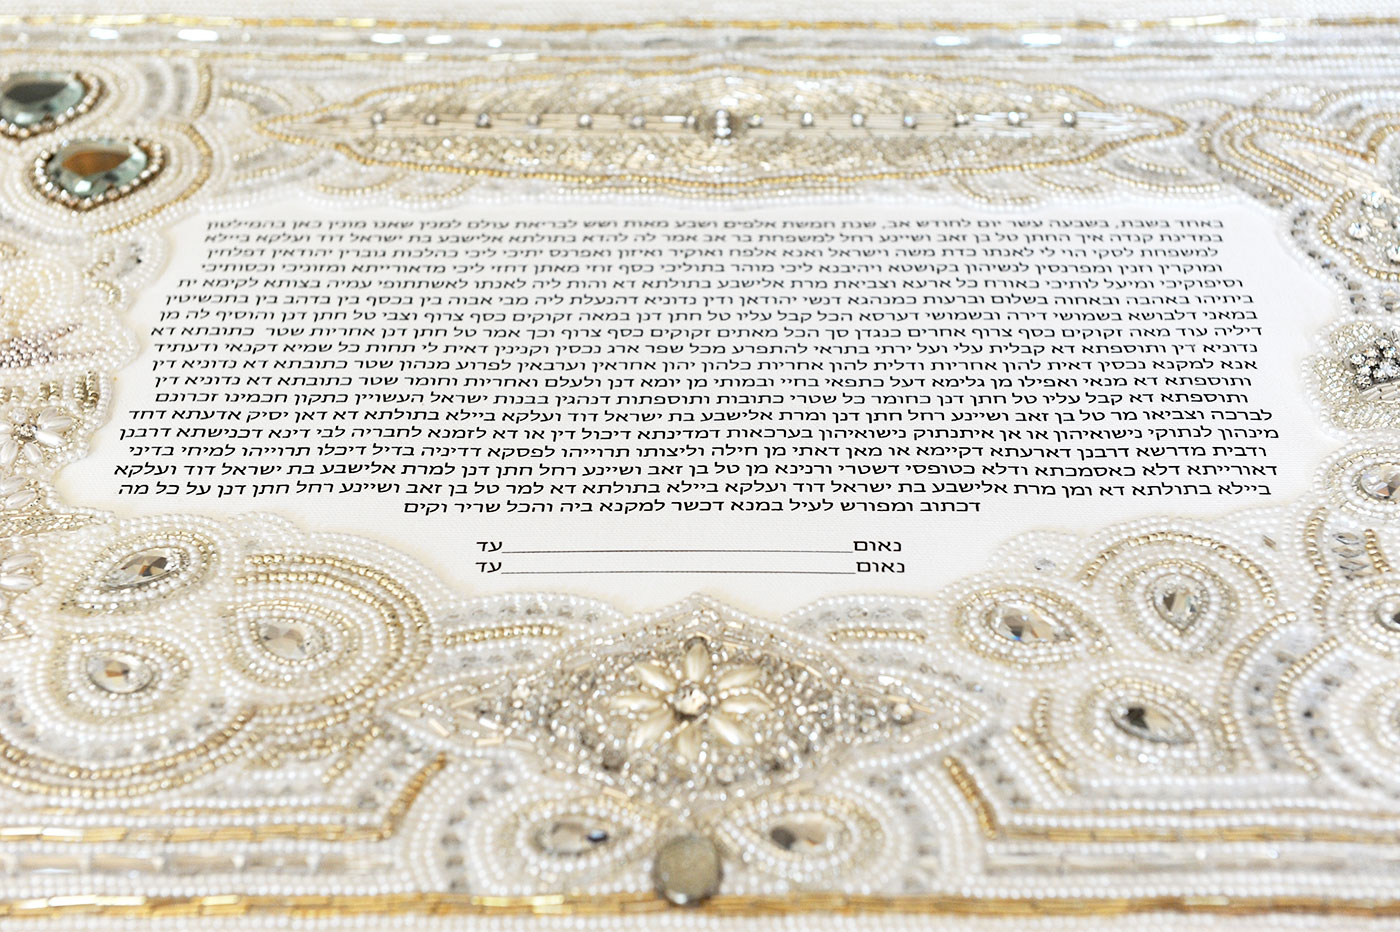 באחד בשבת, בשבעה עשר יום לחודש אב, שנת חמשת אלפים ושבע מאות ושש לבריאת עולם למנין שאנו מונין כאן בהמילטון
במדינת קנדה איך החתן טל בן זאב ושיינע רחל למשפחת בר אב אמר לה להדא בתולתא אלישבע בת ישראל דוד ועלקא ביילא
למשפחת לסקי הוי לי לאנתו כדת משה וישראל ואנא אלפח ואוקיר ואיזון ואפרנס יתיכי ליכי כהלכות גוברין יהודאין דפלחין
ומוקרין וזנין ומפרנסין לנשיהון בקושטא ויהיבנא ליכי מוהר בתוליכי כסף זוזי מאתן דחזי ליכי מדאורייתא ומזוניכי וכסותיכי
וסיפוקיכי ומיעל לותיכי כאורח כל ארעא וצביאת מרת אלישבע בתולתא דא והות ליה לאנתו לאשתתופי עמיה בצותא לקימא ית
ביתיהו באהבה ובאחוה בשלום וברעות כמנהגא דנשי יהודאן ודין נדוניא דהנעלת ליה מבי אבוה בין בכסף בין בדהב בין בתכשיטין
במאני דלבושא בשמושי דירה ובשמושי דערסא הכל קבל עליו טל חתן דנן במאה זקוקים כסף צרוף וצבי טל חתן דנן והוסיף לה מן
דיליה עוד מאה זקוקים כסף צרוף אחרים כנגדן סך הכל מאתים זקוקים כסף צרוף וכך אמר טל חתן דנן אחריות שטר כתובתא דא
נדוניא דין ותוספתא דא קבלית עלי ועל ירתי בתראי להתפרע מכל שפר ארג נכסין וקנינין דאית לי תחות כל שמיא דקנאי ודעתיד
אנא למקנא נכסין דאית להון אחריות ודלית להון אחריות כלהון יהון אחראין וערבאין לפרוע מנהון שטר כתובתא דא נדוניא דין
ותוספתא דא מנאי ואפילו מן גלימא דעל כתפאי בחיי ובמותי מן יומא דנן ולעלם ואחריות וחומר שטר כתובתא דא נדוניא דין
ותוספתא דא קבל עליו טל חתן דנן כחומר כל שטרי כתובות ותוספתות דנהגין בבנות ישראל העשויין כתקון חכמינו זכרונם
לברכה וצביאו מר טל בן זאב ושיינע רחל חתן דנן ומרת אלישבע בת ישראל דוד ועלקא ביילא בתולתא דא דאן יסיק אדעתא דחד
מינהון לנתוקי נישואיהון או אן איתנתוק נישואיהון בערכאות דמדינתא דיכול דין או דא לזמנא לחבריה לבי דינא דכנישתא דרבנן
ודבית מדרשא דרבנן דארעתא דקיימא או מאן דאתי מן חילה וליצותו תרוייהו לפסקא דדיניה בדיל דיכלו תרוייהו למיחי בדיני
דאורייתא דלא כאסמכתא ודלא כטופסי דשטרי ורנינא מן טל בן זאב ושיינע רחל חתן דנן למרת אלישבע בת ישראל דוד ועלקא
ביילא בתולתא דא ומן מרת אלישבע בת ישראל דוד ועלקא ביילא בתולתא דא למר טל בן זאב ושיינע רחל חתן דנן על כל מה
דכתוב ומפורש לעיל במנא דכשר למקנא ביה והכל שריר וקים
נאום____________________עד
נאום____________________עד